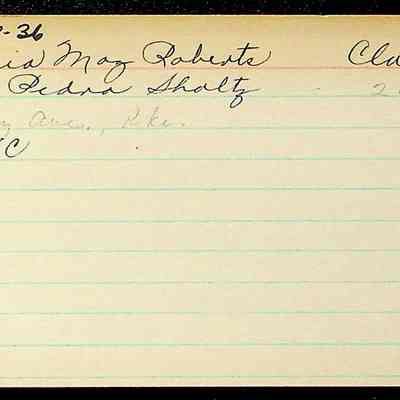 -36
ia May Roberts Cla
Pedra Sholtz 2
Ave., Rke.
C